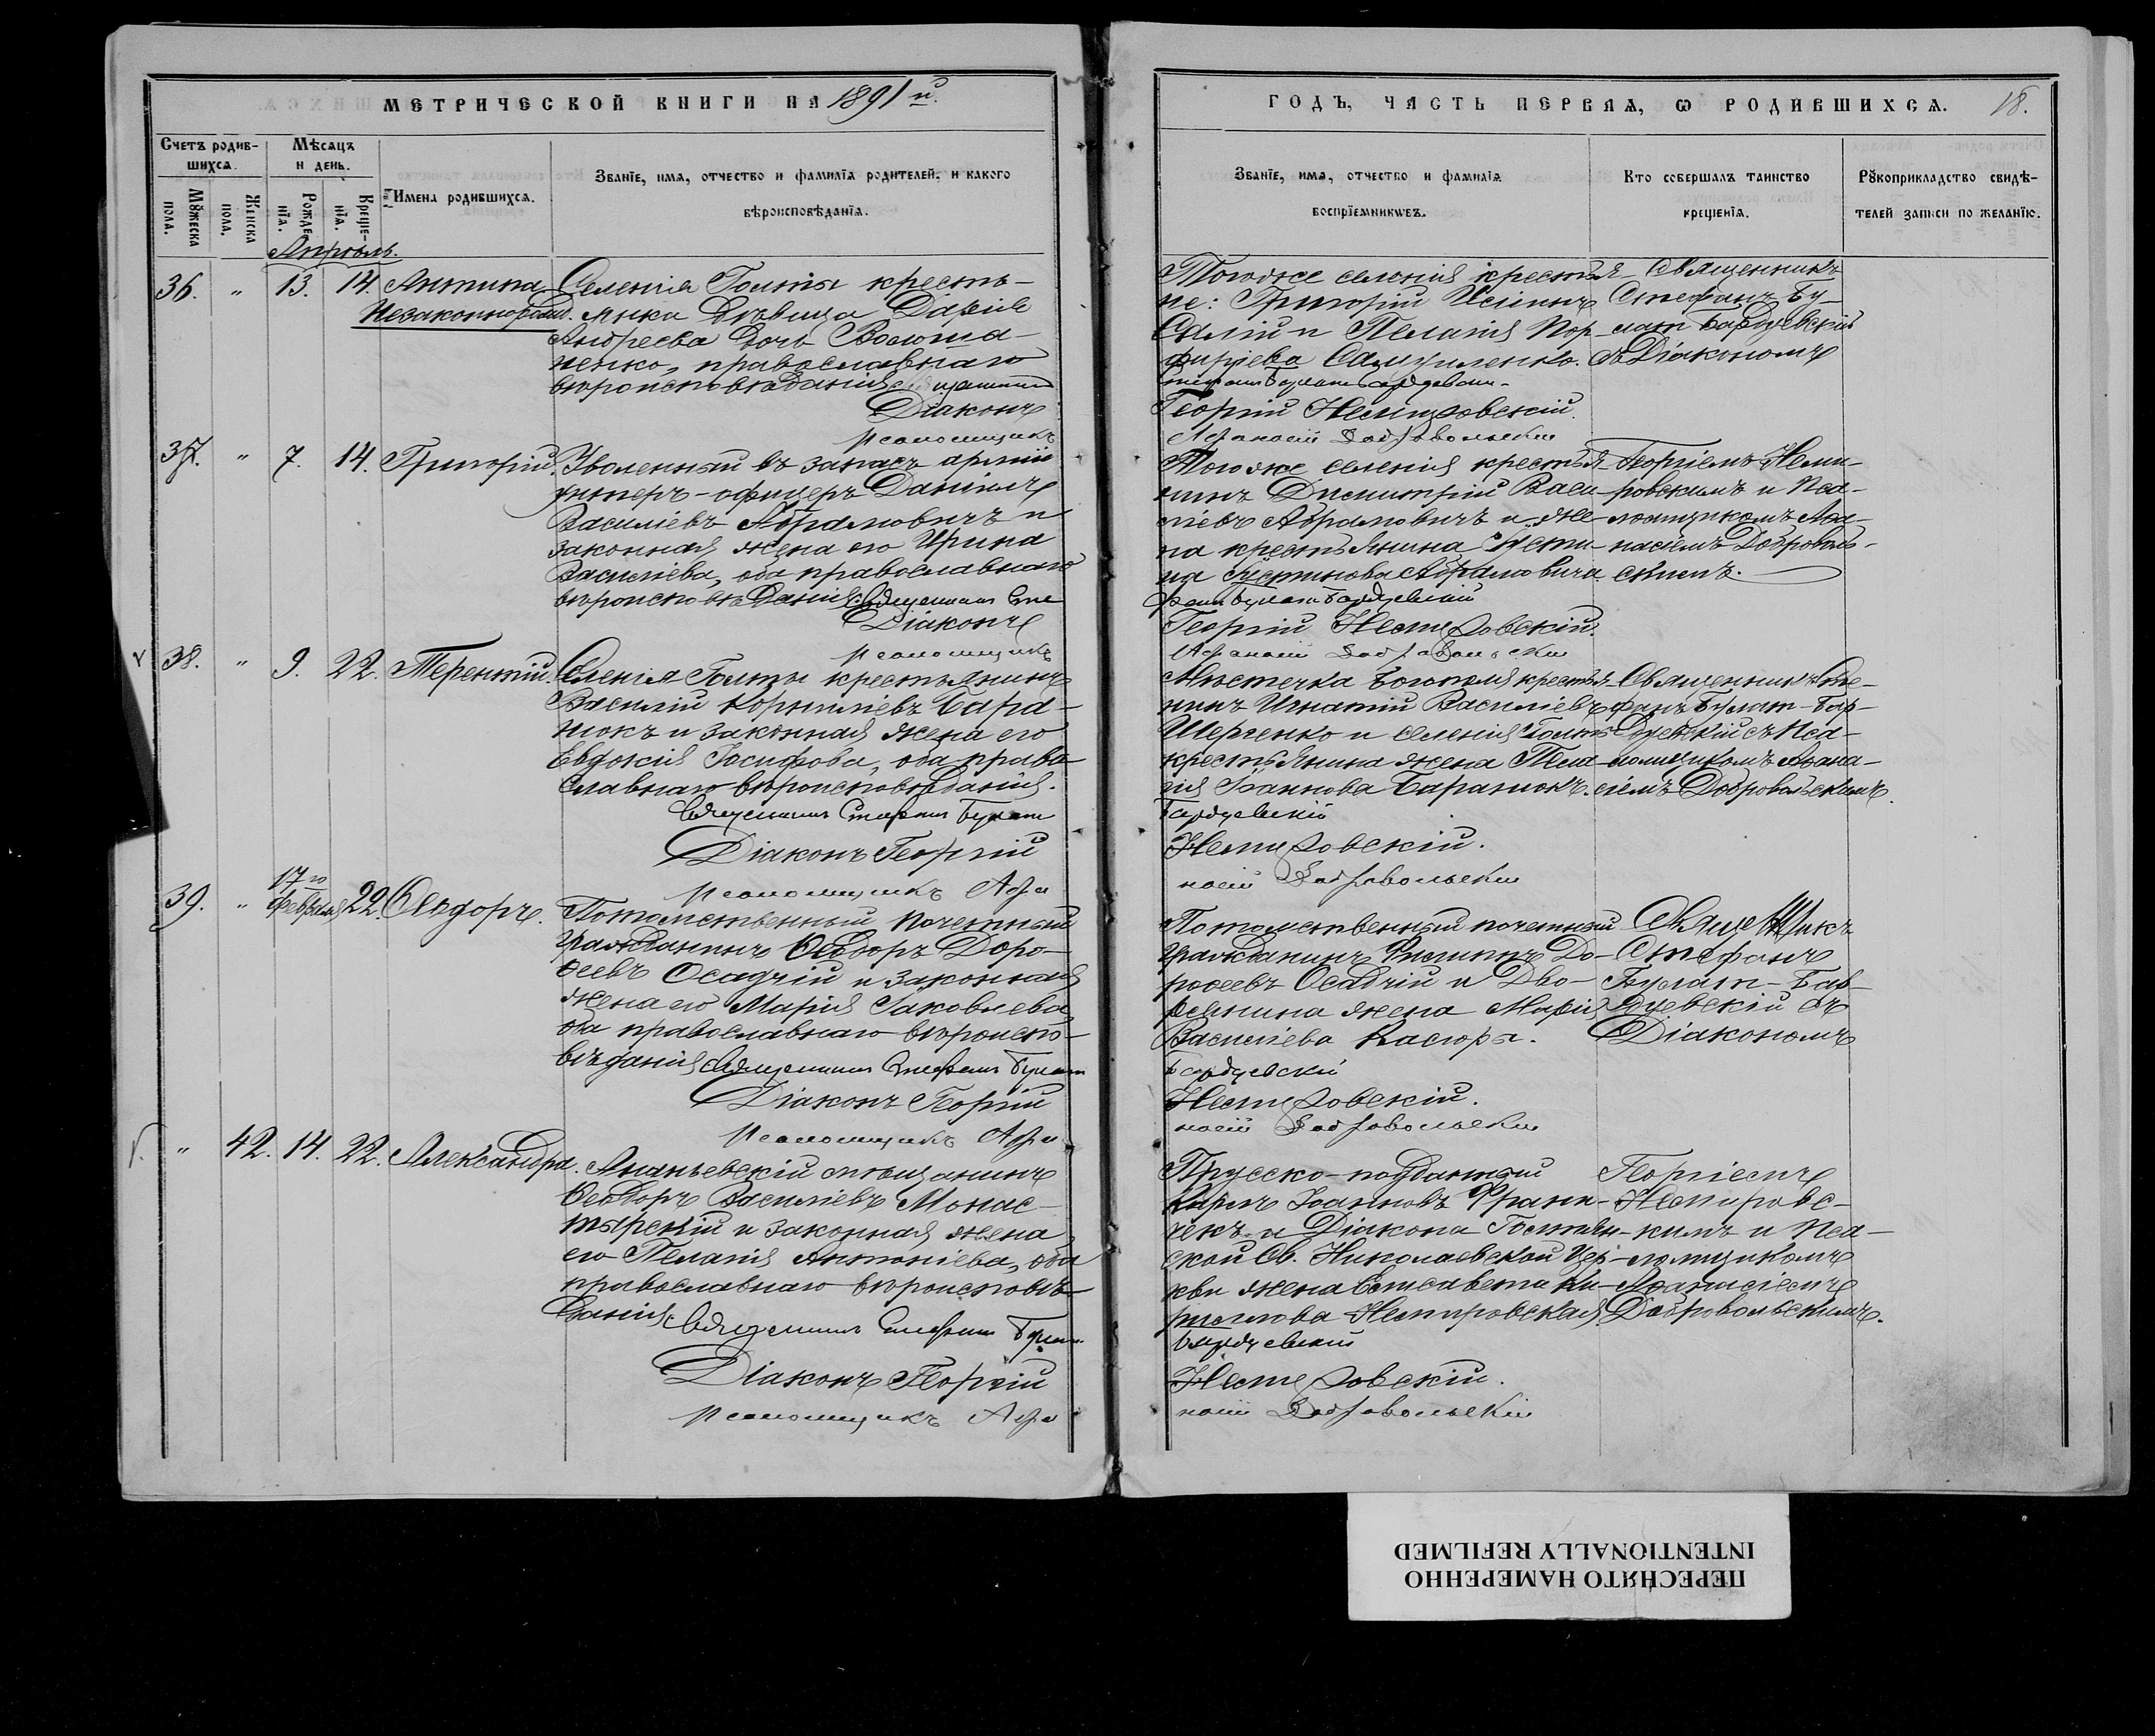 МЕТРИЧЕСКОЙ КНИГИ НА 1891 й.
Счетъ родив-
шихся.
Мѣсяцъ
и день.
Имена родившихся.
Званїе, имя, отчество и фамилїя родителей, и какого
вѣроисповѣданїя.
Мꙋжеска
пола.
Женска
пола.
Рожде-
нїя.
Креще-
нїя.
Апрѣль.
36. „ 13. 14. Антипа
Незаконнорожд.
Селенія Голты кресть-
янка дѣвица Дарія
Андреева дочь Волоша-
ненко, православнаго
вѣроисповѣданія
Діаконъ
Псаломщикъ
37. „ 7. 14. Григорій.
Уволенный въ запасъ арміи
унтеръ-офицеръ Даніилъ
Василіевъ Абрамовичъ и
законная жена его Ирина
Василіева, оба православнаго
вѣроисповѣданія. Священникъ Сте
Діаконъ
Псаломщикъ
38. „ 9. 22. Терентій.
Селенія Голты крестьянинъ
Василій Корниліевъ Бара-
нюкъ и законная жена его
Евдокія Іосифова, оба право-
славнаго вѣроисповѣданія.
Священникъ Стефанъ Булат
Діаконъ Георгій
Псаломщикъ Афа
39. „ 17го февраля 22 Ѳеодоръ.
Потомственный почетный
гражданинъ Ѳеодоръ Доро-
ѳеевъ Осадчій и законная
жена его Марія Іаковлева,
оба православнаго вѣроиспо-
вѣданія Священникъ Стефанъ Булат
Діаконъ Георгій
Псаломщикъ Афа
„ 42. 14. 22. Александра.
Ананьевскій мѣщанинъ
Ѳеодоръ Василіевъ Монас-
тырскій и законная жена
его Пелагія Антоніева, оба
православнаго вѣроисповѣ-
данія. Священникъ Стефанъ Булат
Діаконъ Георгій
Псаломщикъ Афа
ГОДЪ, ЧАСТЬ ПЕРВАЯ, Ѡ РОДИВШИХСЯ. 18.
Званїе, имя, отчество и фамилїя
воспрїемникѡвъ.
Кто совершалъ таинство
крещенїя.
Рꙋкоприкладство свидѣ-
телей записи по желанїю.
Тогоже селенія крестья-
не: Григорій
и Пелагія Пор-
фиріева Самуиленко.
Георгій Немировскій.
Афанасій Добровольскій
Священникъ
Стефанъ Бу-
лат Бардуевскій
съ Діакономъ
Тогоже селенія крестья-
нинъ Димитрій Васи-
ліевъ Абрамовичъ и же-
на крестьянина
Іустинова Абрамовича
фанъ Булат Бардуевскій
Георгій Немировскій.
Афанасій Добровольскій
Георгіемъ Неми-
ровскимъ и Пса-
ломщикомъ Аѳа-
насіемъ Доброволь-
скимъ.
Мѣстечка Богополя крестья-
нинъ Игнатій Василіевъ
Шерченко и селенія Голты
крестьянина жена Пела-
гія Іоаннова Баранюкъ.
Бардуевскій
Немировскій.
насій Добровольскій
Священникъ Сте-
фанъ Булат-Бар-
дуевскій съ Пса-
ломщикомъ Аѳана-
сіемъ Добровольскимъ.
Потомственный почетный
гражданинъ Филиппъ До-
роѳеевъ Осадчій и Дво-
рянина жена Марія
Василіева Касюра.
Бардуевскій
Немировскій.
насій Добровольскій
Священникъ
Стефанъ
Булат-Бар-
дуевскій съ
Діакономъ
Прусско-подданный
Карлъ Іоанновъ Франк-
и Діакона
ской Св. Николаевской Цер-
кви жена Елисавета Ки-
риллова Немировская.
Бардуевскій
Немировскій.
насій Добровольскій
Георгіемъ
Немировс-
кимъ и Пса-
ломщикомъ
Аѳанасіемъ
Добровольскимъ.
ПЕРЕСНЯТО НАМЕРЕННО
INTENTIONALLY REFILMED